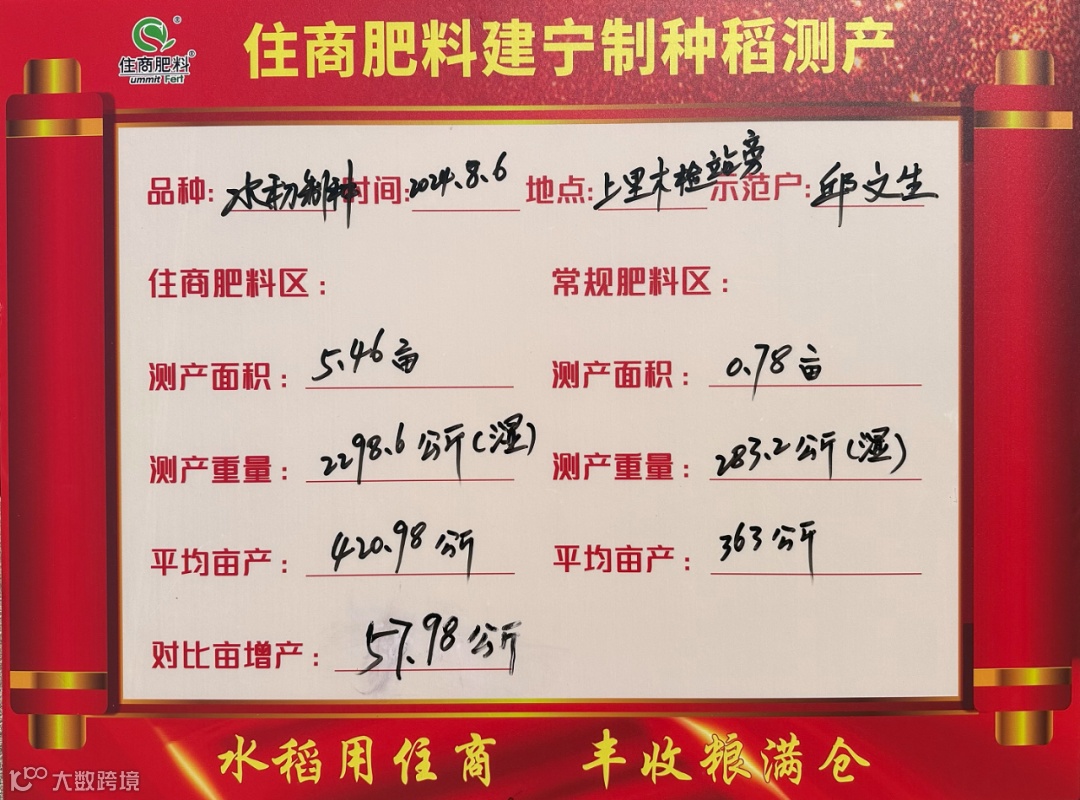 住商肥料建宁制种稻测产
住商肥料®
ummit Fert
品种: 水初制种 时间: 2024.8.6 地点: 上里木检站旁 示范户: 邱文生
住商肥料区: 常规肥料区:
测产面积: 5.46亩 测产面积: 0.78亩
测产重量: 2298.6公斤(湿) 测产重量: 283.2公斤(湿)
平均亩产: 420.98公斤 平均亩产: 363公斤
对比亩增产: 57.98公斤
水稻用住商 丰收粮满仓
大数跨境